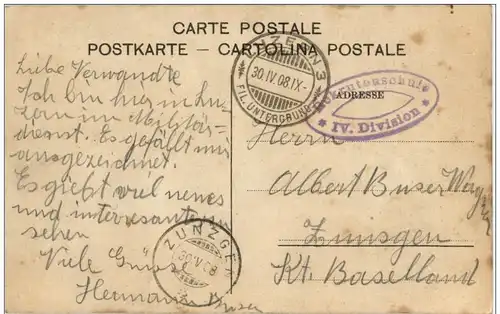 CARTE POSTALE
POSTKARTE — CARTOLINA POSTALE
Liebe Verwandte
Ich bin hier in Lu-
zern im Militär-
dienst. Es gefällt mir
ausgezeichnet.
Es giebt viel neues
und interesantes
sehen
Viele Grüsse
Hermann Buser
LUZERN 3
30.IV.08.IX-
FIL. UNTERGRUND
Rekrutenschule
IV. Division
ADRESSE
Herrn
Albert Buser
Zunsgen
Kt. Baselland
ZUNZGEN
30.IV.08